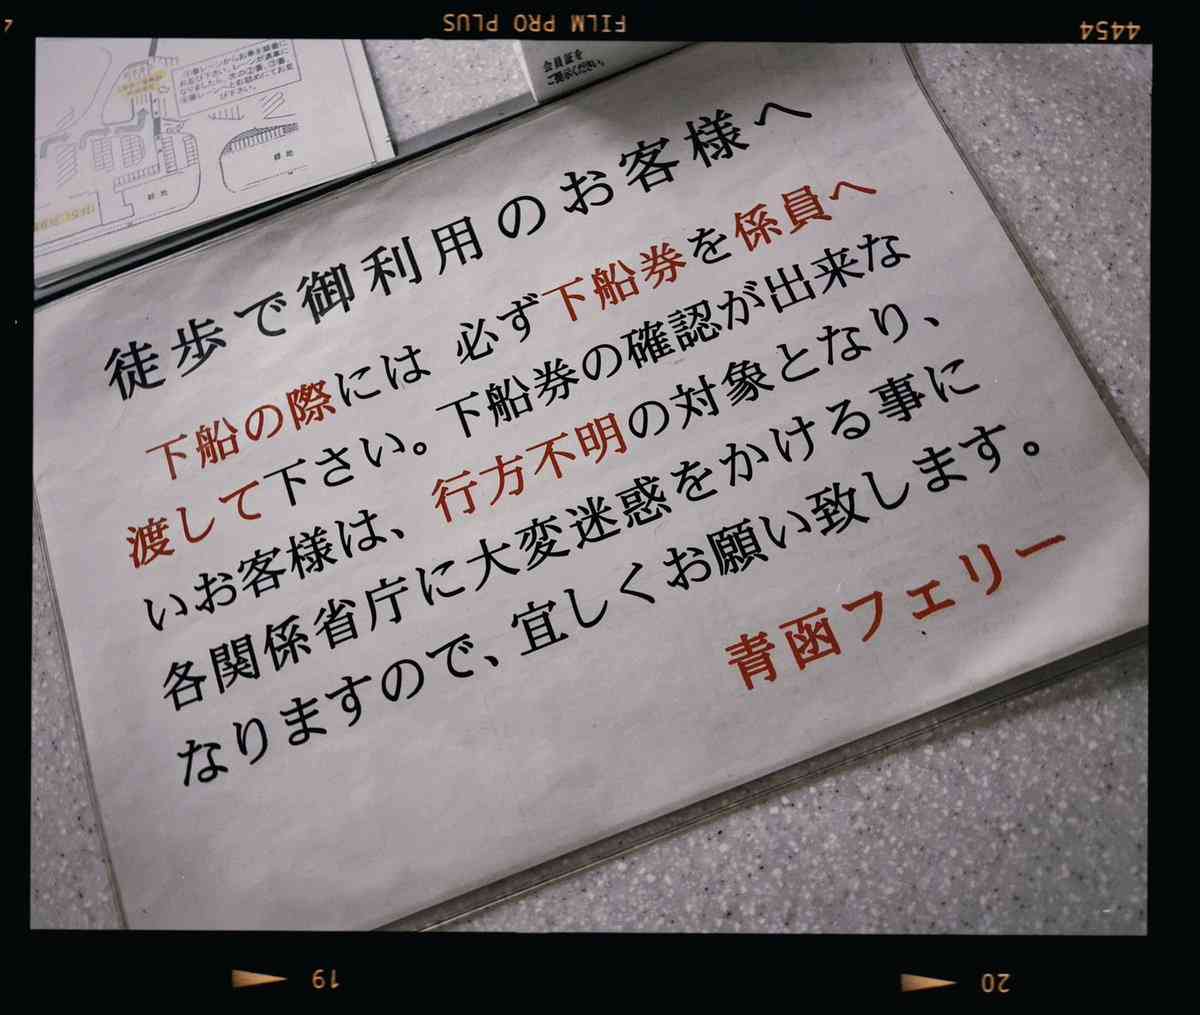 FILM PRO PLUS
4454
会員証を
ご提示ください。
緑地
緑地
徒歩で御利用のお客様へ
下船の際には 必ず下船券を係員へ
渡して下さい。下船券の確認が出来な
いお客様は、行方不明の対象となり、
各関係省庁に大変迷惑をかける事に
なりますので、宜しくお願い致します。
青函フェリー
19
20